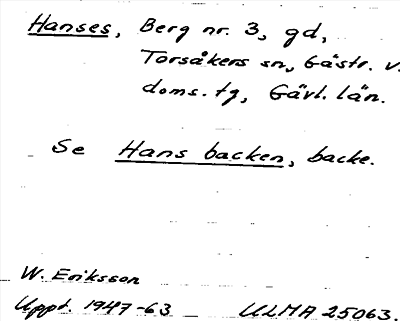 Hanses, Berg nr. 3, gd,
Torsåkers sn, Gästr. v.
doms. tg, Gävl. län.
Se Hans backen, backe.
W. Eriksson
Uppt. 1947-63 ULMA 25063.